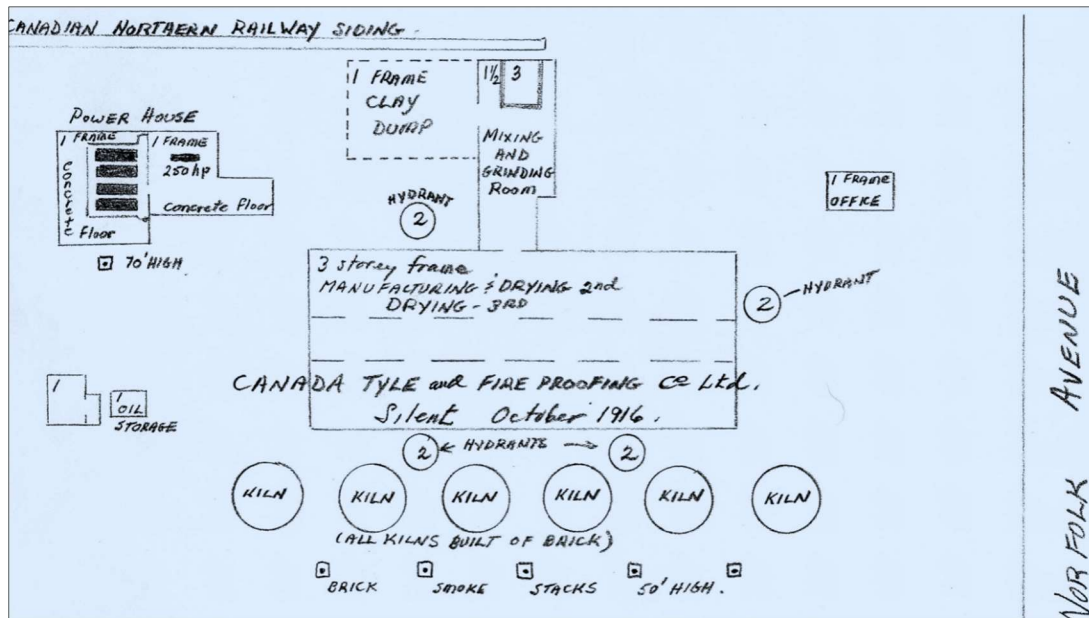 CANADIAN NORTHERN RAILWAY SIDING
1 FRAME
CLAY
DUMP
1½ 3
MIXING
AND
GRINDING
ROOM
POWER HOUSE
1 FRAME
1 FRAME
250 hp
Concrete Floor
Concrete
Floor
70' HIGH
HYDRANT
2
1 FRAME
OFFICE
3 storey frame
MANUFACTURING & DRYING 2nd
DRYING - 3RD
2 HYDRANT
CANADA TYLE and FIRE PROOFING Co Ltd.
Silent October 1916.
1
1
OIL
STORAGE
2 ← HYDRANTS → 2
KILN KILN KILN KILN KILN KILN
(ALL KILNS BUILT OF BRICK)
BRICK SMOKE STACKS 50' HIGH.
NORFOLK AVENUE